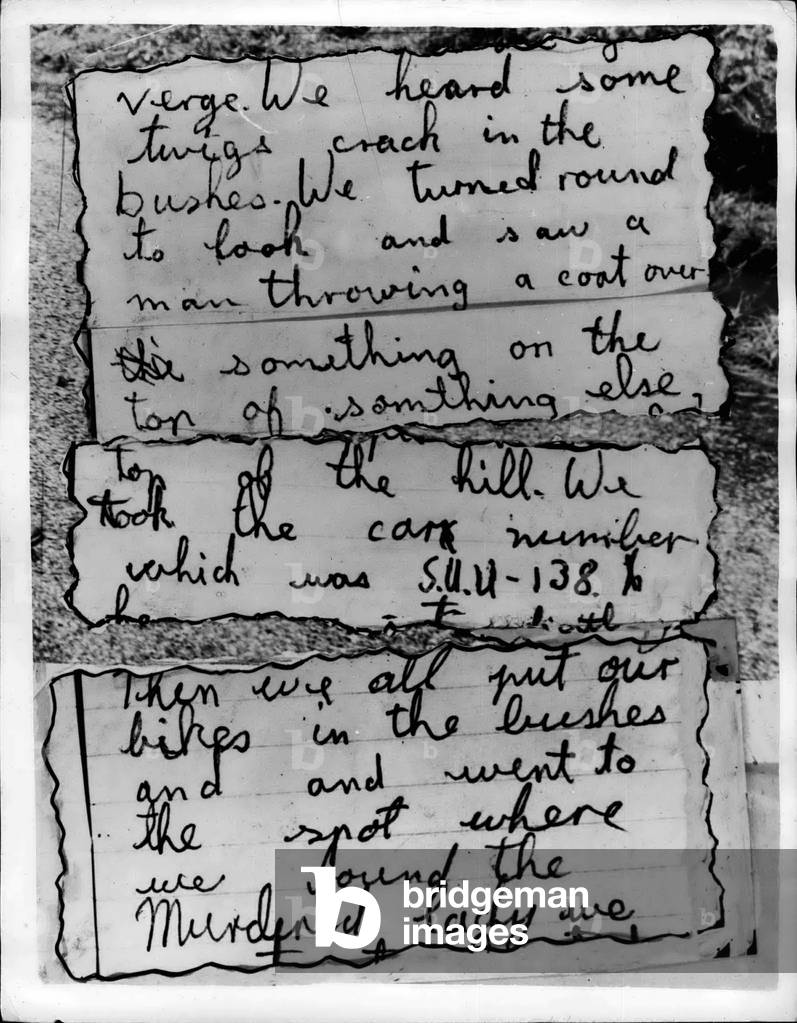 verge. We heard some
twigs crack in the
bushes. We turned round
to look and saw a
man throwing a coat over
something on the
top of somthing else,
top of the hill. We
took the car number
which was S.U.U-138.
Then we all put our
bikes in the bushes
and and went to
the spot where
we found the
Murderd lady we
bridgeman
images